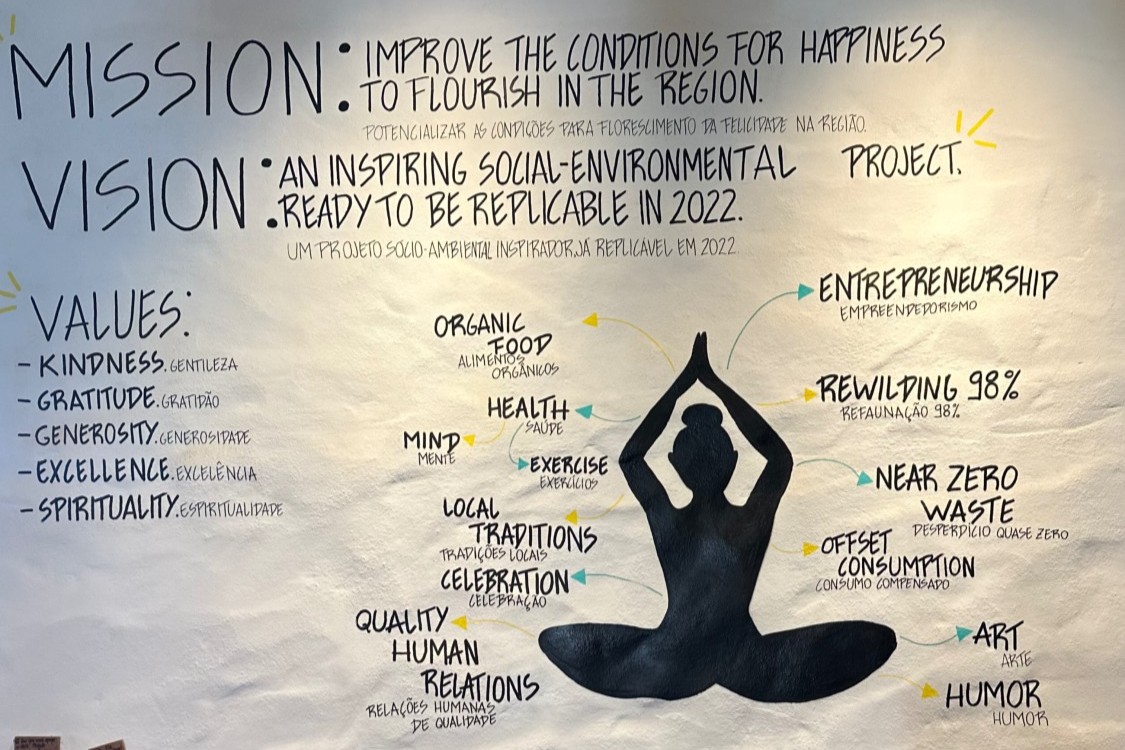 MISSION: IMPROVE THE CONDITIONS FOR HAPPINESS
TO FLOURISH IN THE REGION.
POTENCIALIZAR AS CONDIÇÕES PARA FLORESCIMENTO DA FELICIDADE NA REGIÃO.
VISION: AN INSPIRING SOCIAL-ENVIRONMENTAL PROJECT.
READY TO BE REPLICABLE IN 2022.
UM PROJETO SÓCIO-AMBIENTAL INSPIRADOR, JÁ REPLICÁVEL EM 2022.
VALUES:
- KINDNESS. GENTILEZA
- GRATITUDE. GRATIDÃO
- GENEROSITY. GENEROSIDADE
- EXCELLENCE. EXCELÊNCIA
- SPIRITUALITY. ESPIRITUALIDADE
ORGANIC
FOOD
ALIMENTOS
ORGÂNICOS
HEALTH
SAÚDE
MIND
MENTE
EXERCISE
EXERCÍCIOS
LOCAL
TRADITIONS
TRADIÇÕES LOCAIS
CELEBRATION
CELEBRAÇÃO
QUALITY
HUMAN
RELATIONS
RELAÇÕES HUMANAS
DE QUALIDADE
ENTREPRENEURSHIP
EMPREENDEDORISMO
REWILDING 98%
REFAUNAÇÃO 98%
NEAR ZERO
WASTE
DESPERDÍCIO QUASE ZERO
OFFSET
CONSUMPTION
CONSUMO COMPENSADO
ART
ARTE
HUMOR
HUMOR